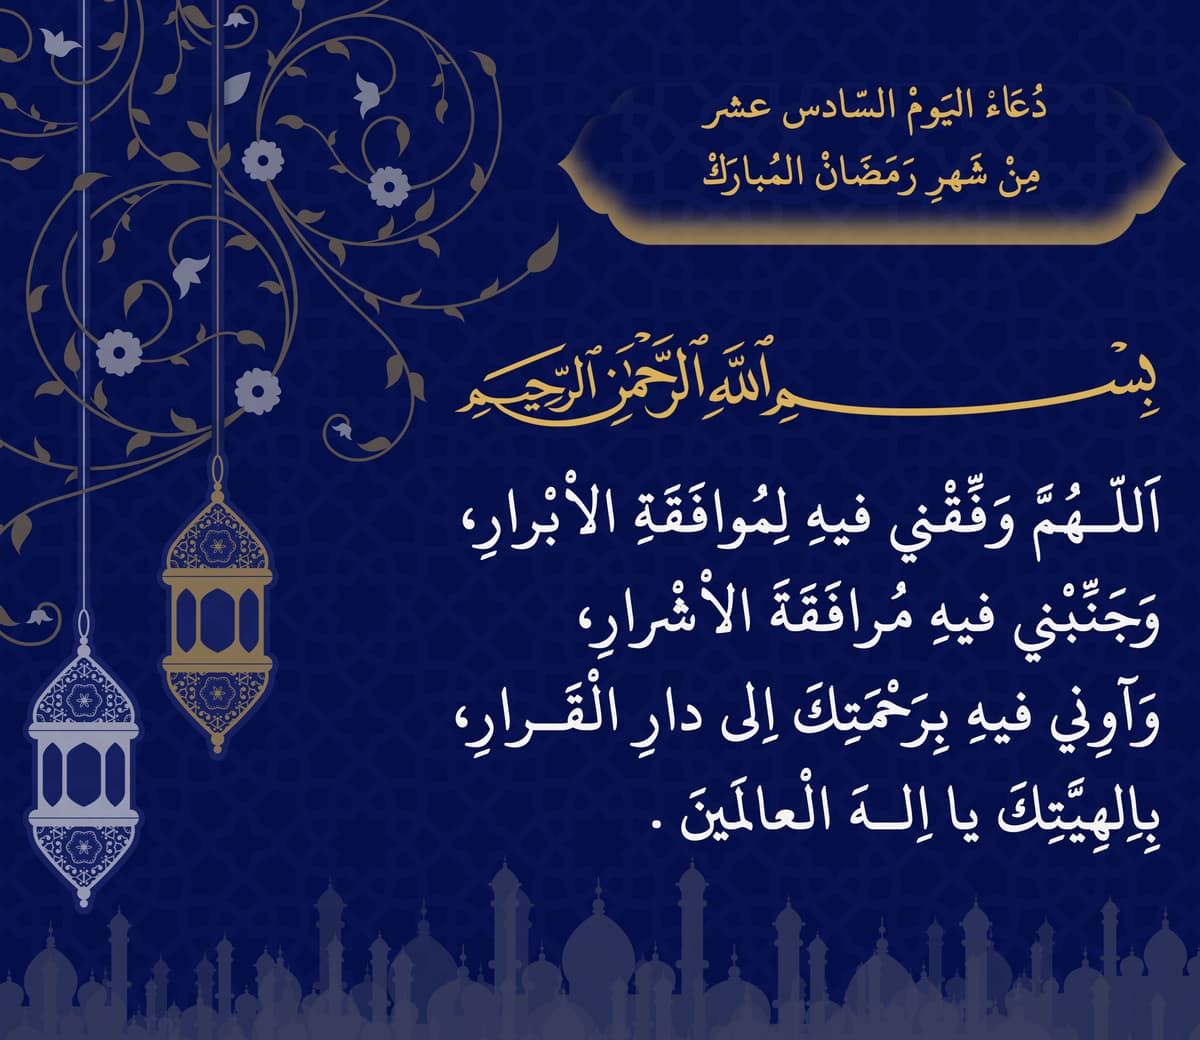 دُعَاءْ اليَومْ السّادس عشر
مِنْ شَهرِ رَمَضَانْ المُبارَكْ
بِسْمِ اللَّهِ الرَّحْمَٰنِ الرَّحِيمِ
اَللّـهُمَّ وَفِّقْني فيهِ لِمُوافَقَةِ الاْبْرارِ،
وَجَنِّبْني فيهِ مُرافَقَةَ الاْشْرارِ،
وَآوِني فيهِ بِرَحْمَتِكَ اِلى دارِ الْقَـرارِ،
بِاِلهِيَّتِكَ يا اِلـهَ الْعالَمينَ .